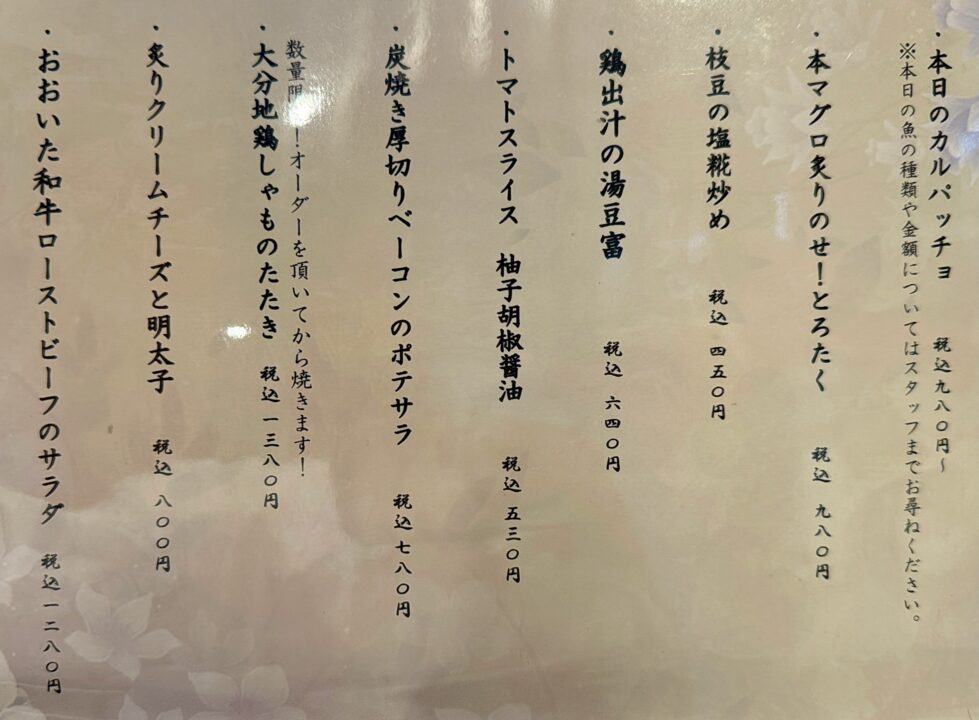 ・本日のカルパッチョ 税込九八〇円~
※本日の魚の種類や金額についてはスタッフまでお尋ねください。
・本マグロ炙りのせ!とろたく 税込 九八〇円
・枝豆の塩糀炒め 税込 四五〇円
・鶏出汁の湯豆富 税込 六四〇円
・トマトスライス 柚子胡椒醤油 税込 五三〇円
・炭焼き厚切りベーコンのポテサラ 税込 七八〇円
数量限!オーダーを頂いてから焼きます!
・大分地鶏しゃものたたき 税込 一三八〇円
・炙りクリームチーズと明太子 税込 八〇〇円
・おおいた和牛ローストビーフのサラダ 税込 一二八〇円